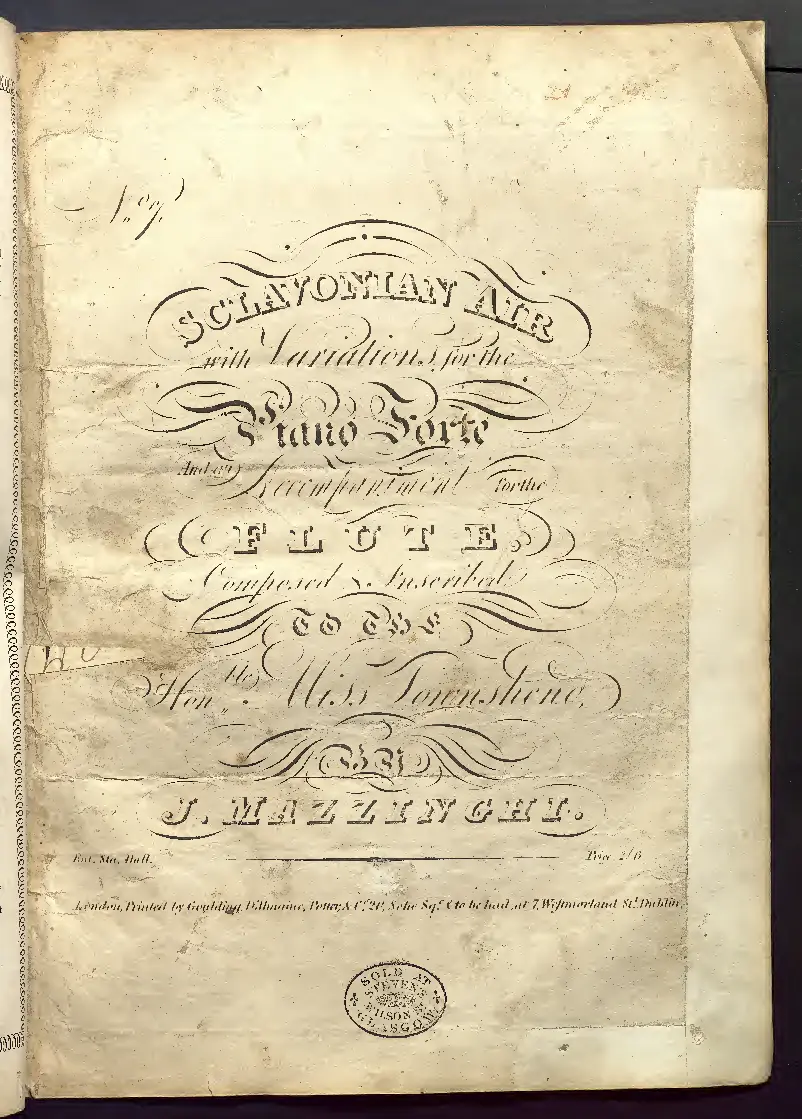 No. 7.
SCLAVONIAN AIR
with Variations, for the
Piano Forte
And an Accompaniment for the
FLUTE.
Composed & Inscribed
TO THE
Honble. Miss Townshend,
BY
J. MAZZINGHI.
Ent. Sta. Hall.
Price 2/6
London, Printed by Goulding, D'Almaine, Potter, & Co. 20, Soho Sqe. & to be had, at 7, Westmorland St. Dublin.
SOLD AT
STEVEN'S
WILSON St.
GLASGOW